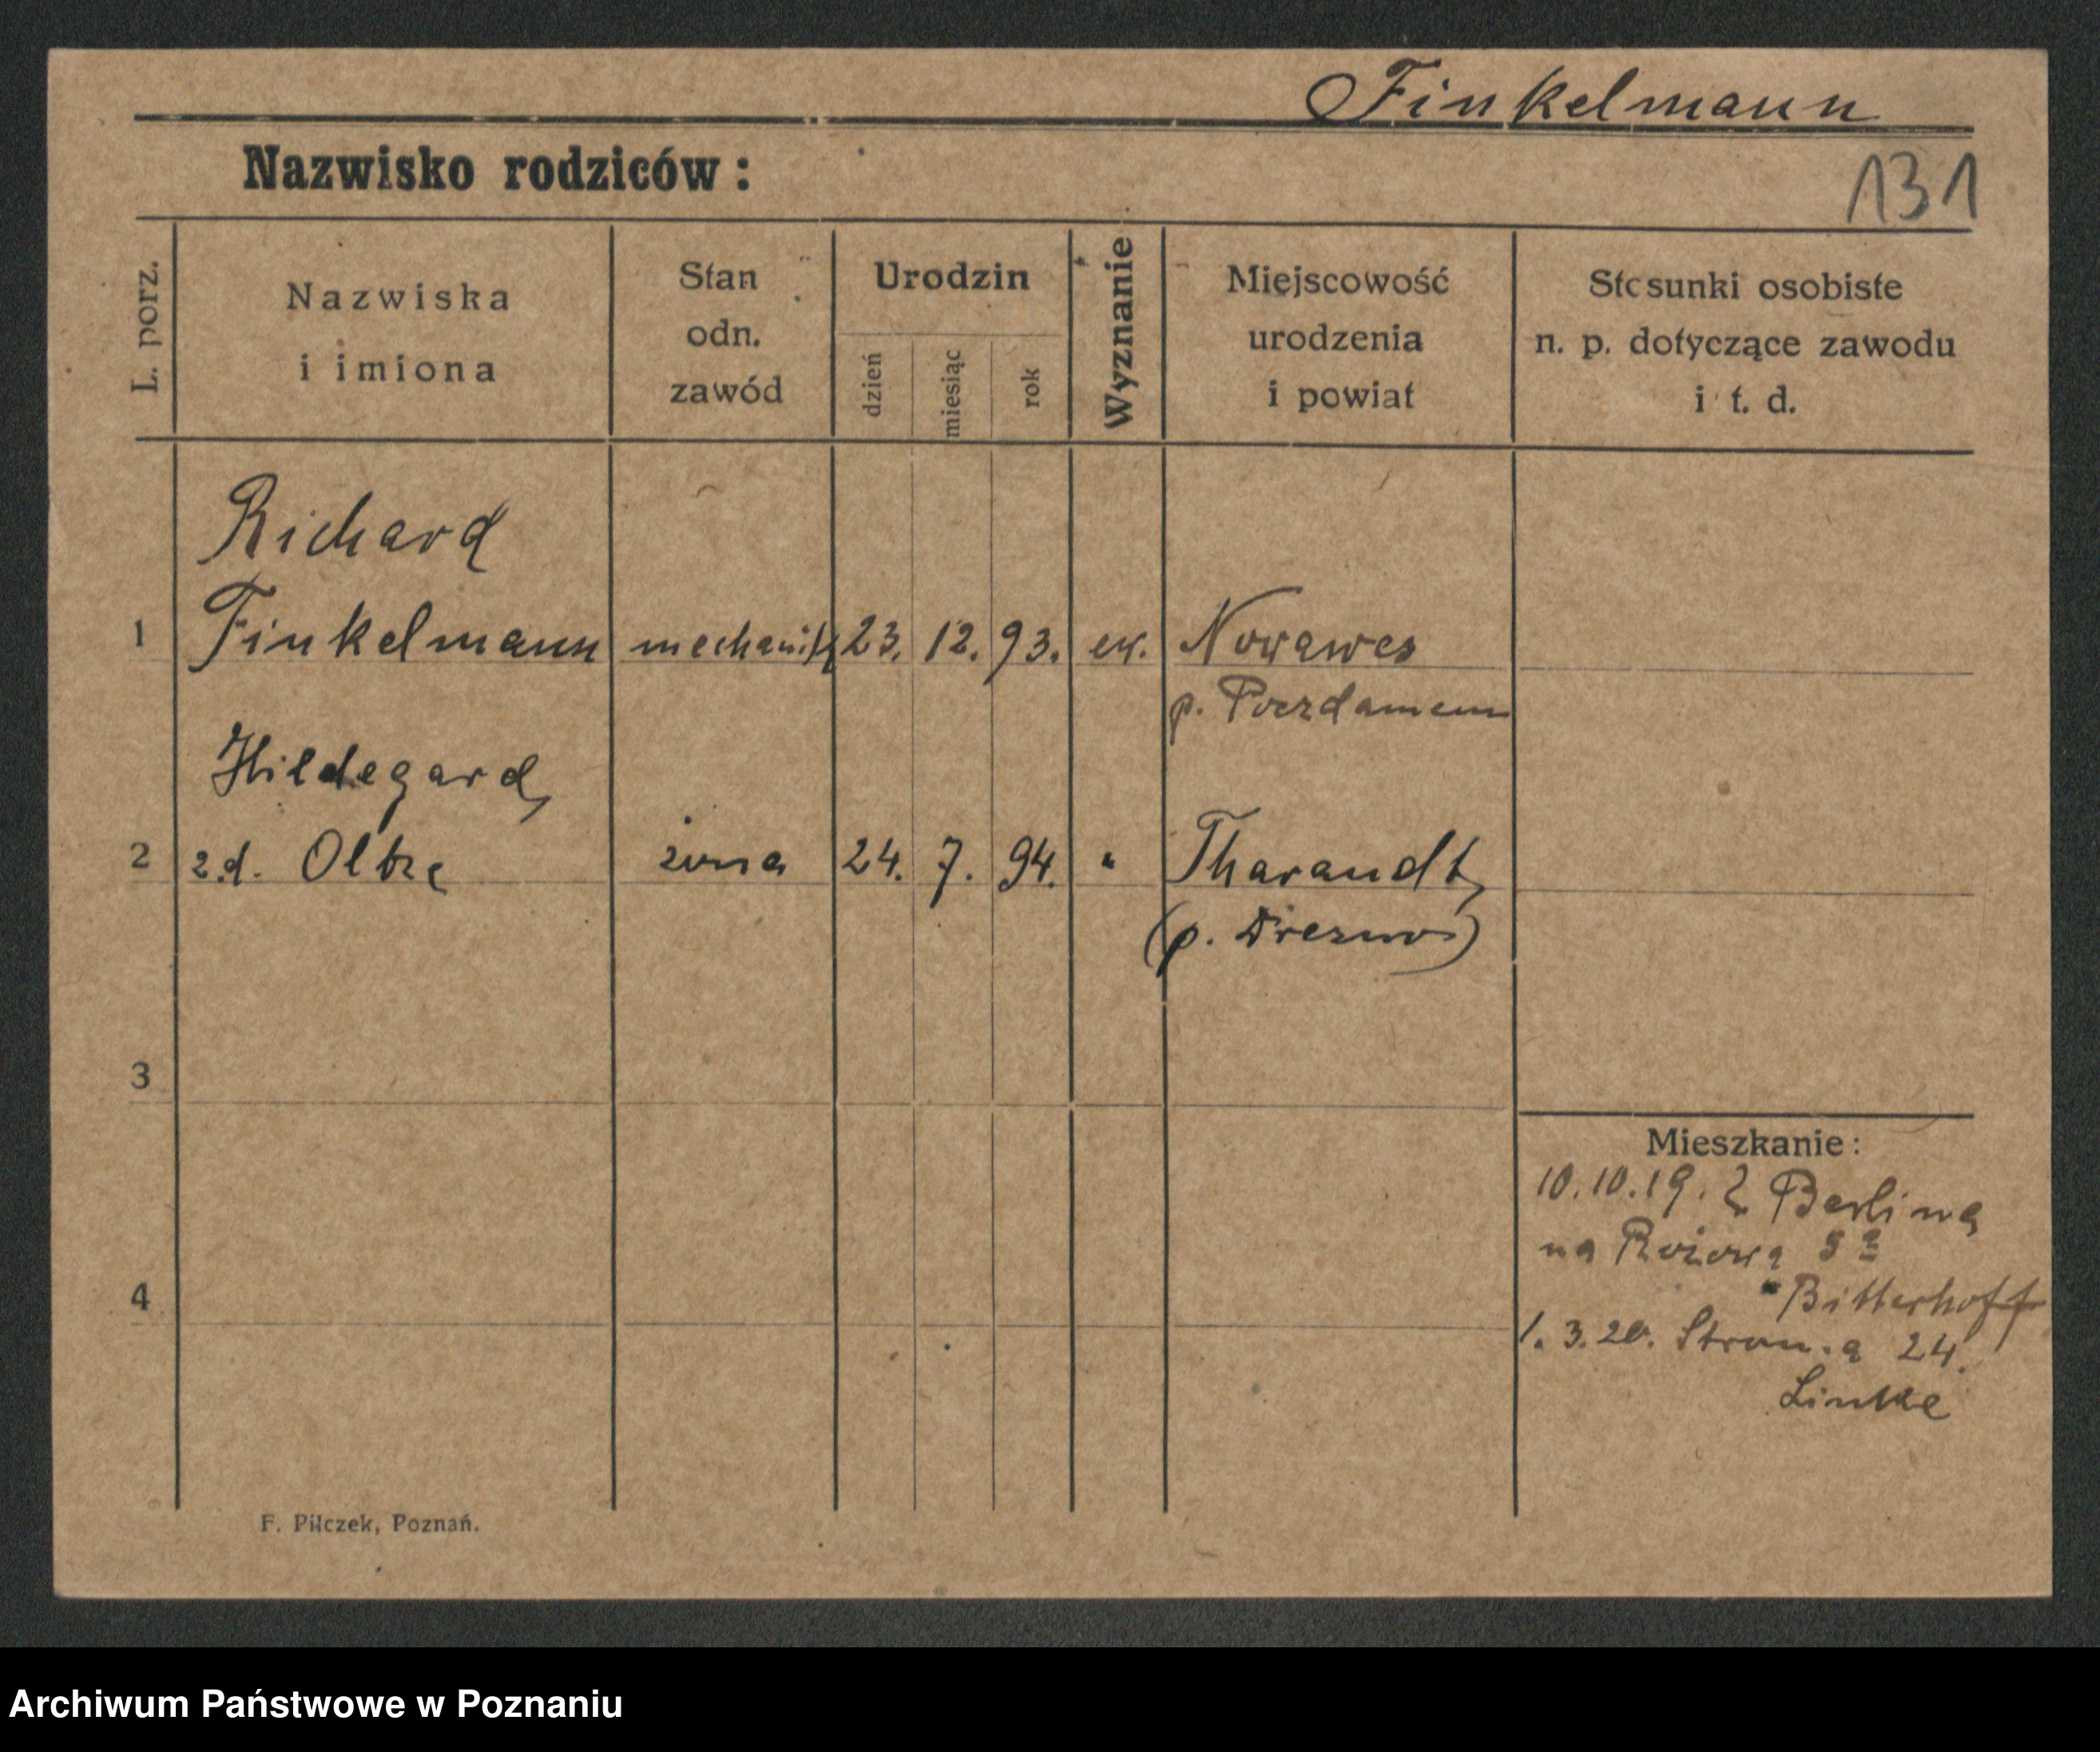 Finkelmann
Nazwisko rodziców :
131
L. porz.
Nazwiska
i imiona
Stan
odn.
zawód
Urodzin
dzień
miesiąc
rok
Wyznanie
Miejscowość
urodzenia
i powiat
Stosunki osobiste
n. p. dotyczące zawodu
i t. d.
Richard
1 Finkelmann mechanik 23. 12. 93. ew. Nowawes
p. Poczdamem
Hildegard,
2 z.d. żona 24. 7. 94. " Tharandt,
(p. Drezno)
3
Mieszkanie :
10.10.19. z Berlina
na Różową 5a
Bitterhoff
4
1.3.20. 24.
Linke
F. Pilczek, Poznań.
Archiwum Państwowe w Poznaniu